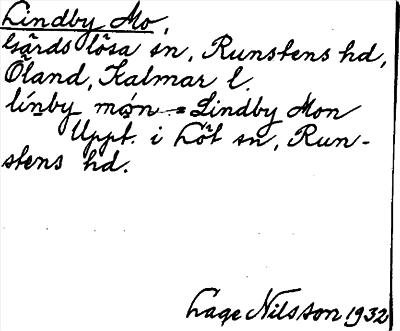 Lindby Mo,
Gärdslösa sn, Runstens hd,
Öland, Kalmar l.
línby món = Lindby Mon
Uppt. i Löt sn, Run-
stens hd.
Lage Nilsson 1932